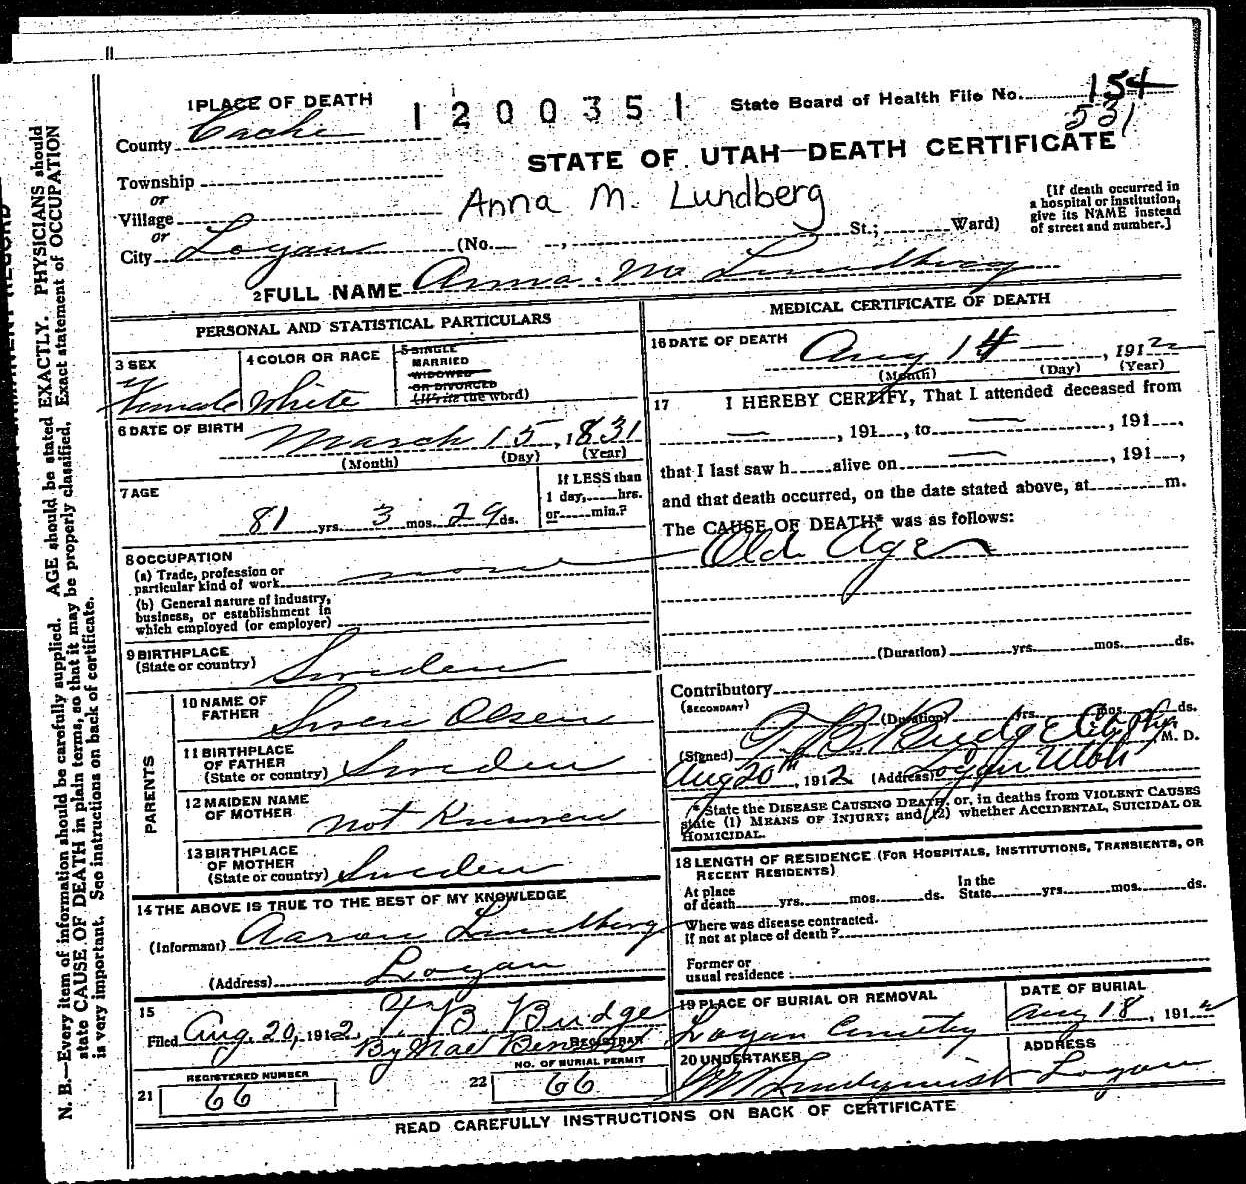 1 PLACE OF DEATH
1200351
State Board of Health File No. 154
531
County Cache
STATE OF UTAH—DEATH CERTIFICATE
Township
or
Village
or
City Logan (No. , St.; Ward)
Anna M. Lundberg
[If death occurred in
a hospital or institution,
give its NAME instead
of street and number.]
2 FULL NAME Anna M. Lundberg
PERSONAL AND STATISTICAL PARTICULARS
3 SEX
Female
4 COLOR OR RACE
White
5 SINGLE
MARRIED
WIDOWED
OR DIVORCED
(Write the word)
6 DATE OF BIRTH
March 15, 1831
(Month) (Day) (Year)
7 AGE
81 yrs. 3 mos. 29 ds.
If LESS than
1 day, hrs.
or min.?
8 OCCUPATION
(a) Trade, profession or
particular kind of work none
(b) General nature of industry,
business, or establishment in
which employed (or employer)
9 BIRTHPLACE
(State or country) Sweden
PARENTS
10 NAME OF
FATHER Swen Olsen
11 BIRTHPLACE
OF FATHER
(State or country) Sweden
12 MAIDEN NAME
OF MOTHER not Known
13 BIRTHPLACE
OF MOTHER
(State or country) Sweden
14 THE ABOVE IS TRUE TO THE BEST OF MY KNOWLEDGE
(Informant) Aaron Lundberg
(Address) Logan
15
Filed Aug. 20, 1912, T. B. Budge
By Mae REGISTRAR
21 REGISTERED NUMBER
66
22 NO. OF BURIAL PERMIT
66
MEDICAL CERTIFICATE OF DEATH
16 DATE OF DEATH
Aug 14 , 1912
(Month) (Day) (Year)
17 I HEREBY CERTIFY, That I attended deceased from
— , 191 , to — , 191 ,
that I last saw h alive on — , 191 ,
and that death occurred, on the date stated above, at m.
The CAUSE OF DEATH* was as follows:
Old Age
(Duration) yrs. mos. ds.
Contributory
(SECONDARY)
(Duration) yrs. mos. ds.
(Signed) T B Budge City Phy M. D.
Aug 20th, 1912 (Address) Logan Utah
* State the DISEASE CAUSING DEATH, or, in deaths from VIOLENT CAUSES
state (1) MEANS OF INJURY; and (2) whether ACCIDENTAL, SUICIDAL OR
HOMICIDAL.
18 LENGTH OF RESIDENCE (FOR HOSPITALS, INSTITUTIONS, TRANSIENTS, OR
RECENT RESIDENTS)
At place
of death yrs. mos. ds.
In the
State yrs. mos. ds.
Where was disease contracted.
If not at place of death?
Former or
usual residence :
19 PLACE OF BURIAL OR REMOVAL
Logan Cemetery
DATE OF BURIAL
Aug 18, 1912
20 UNDERTAKER
Lundquist
ADDRESS
Logan
READ CAREFULLY INSTRUCTIONS ON BACK OF CERTIFICATE
N. B.—Every item of information should be carefully supplied. AGE should be stated EXACTLY. PHYSICIANS should
state CAUSE OF DEATH in plain terms, so that it may be properly classified. Exact statement of OCCUPATION
is very important. See instructions on back of certificate.